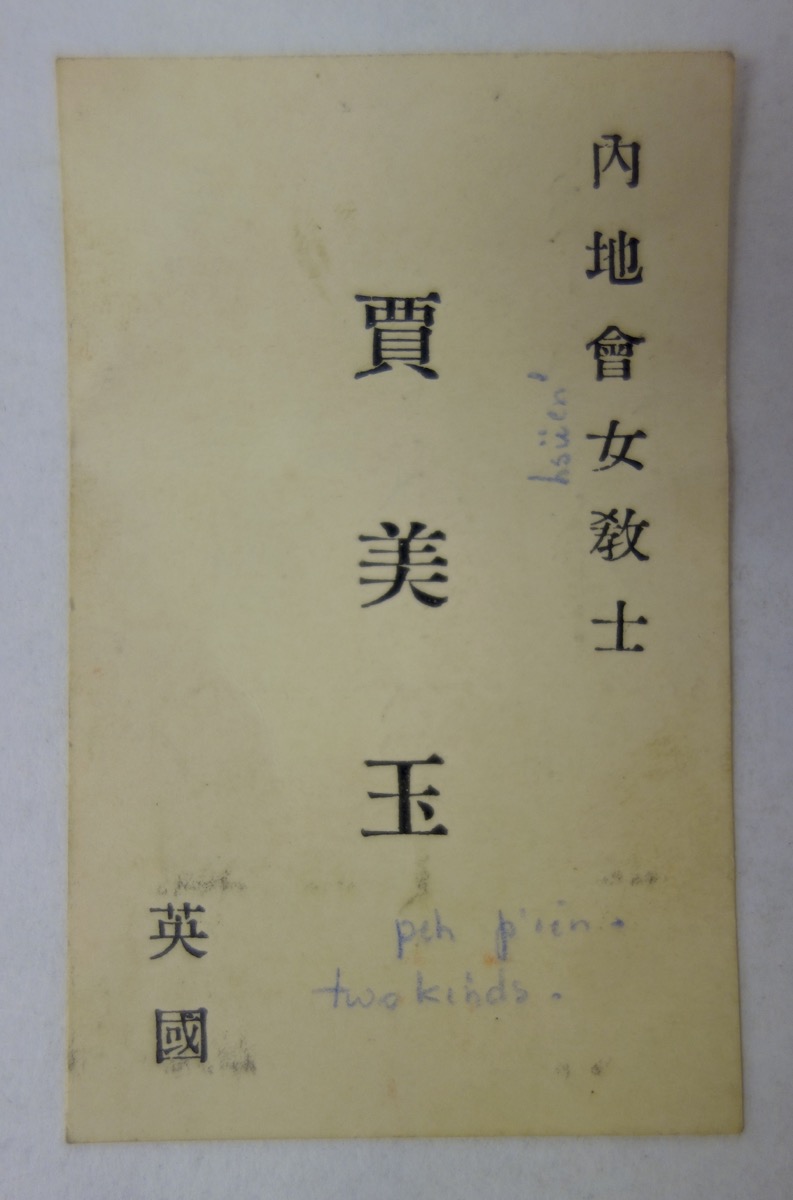 內地會女教士
賈美玉
英國
hsüen'
peh p'ien.
two kinds.